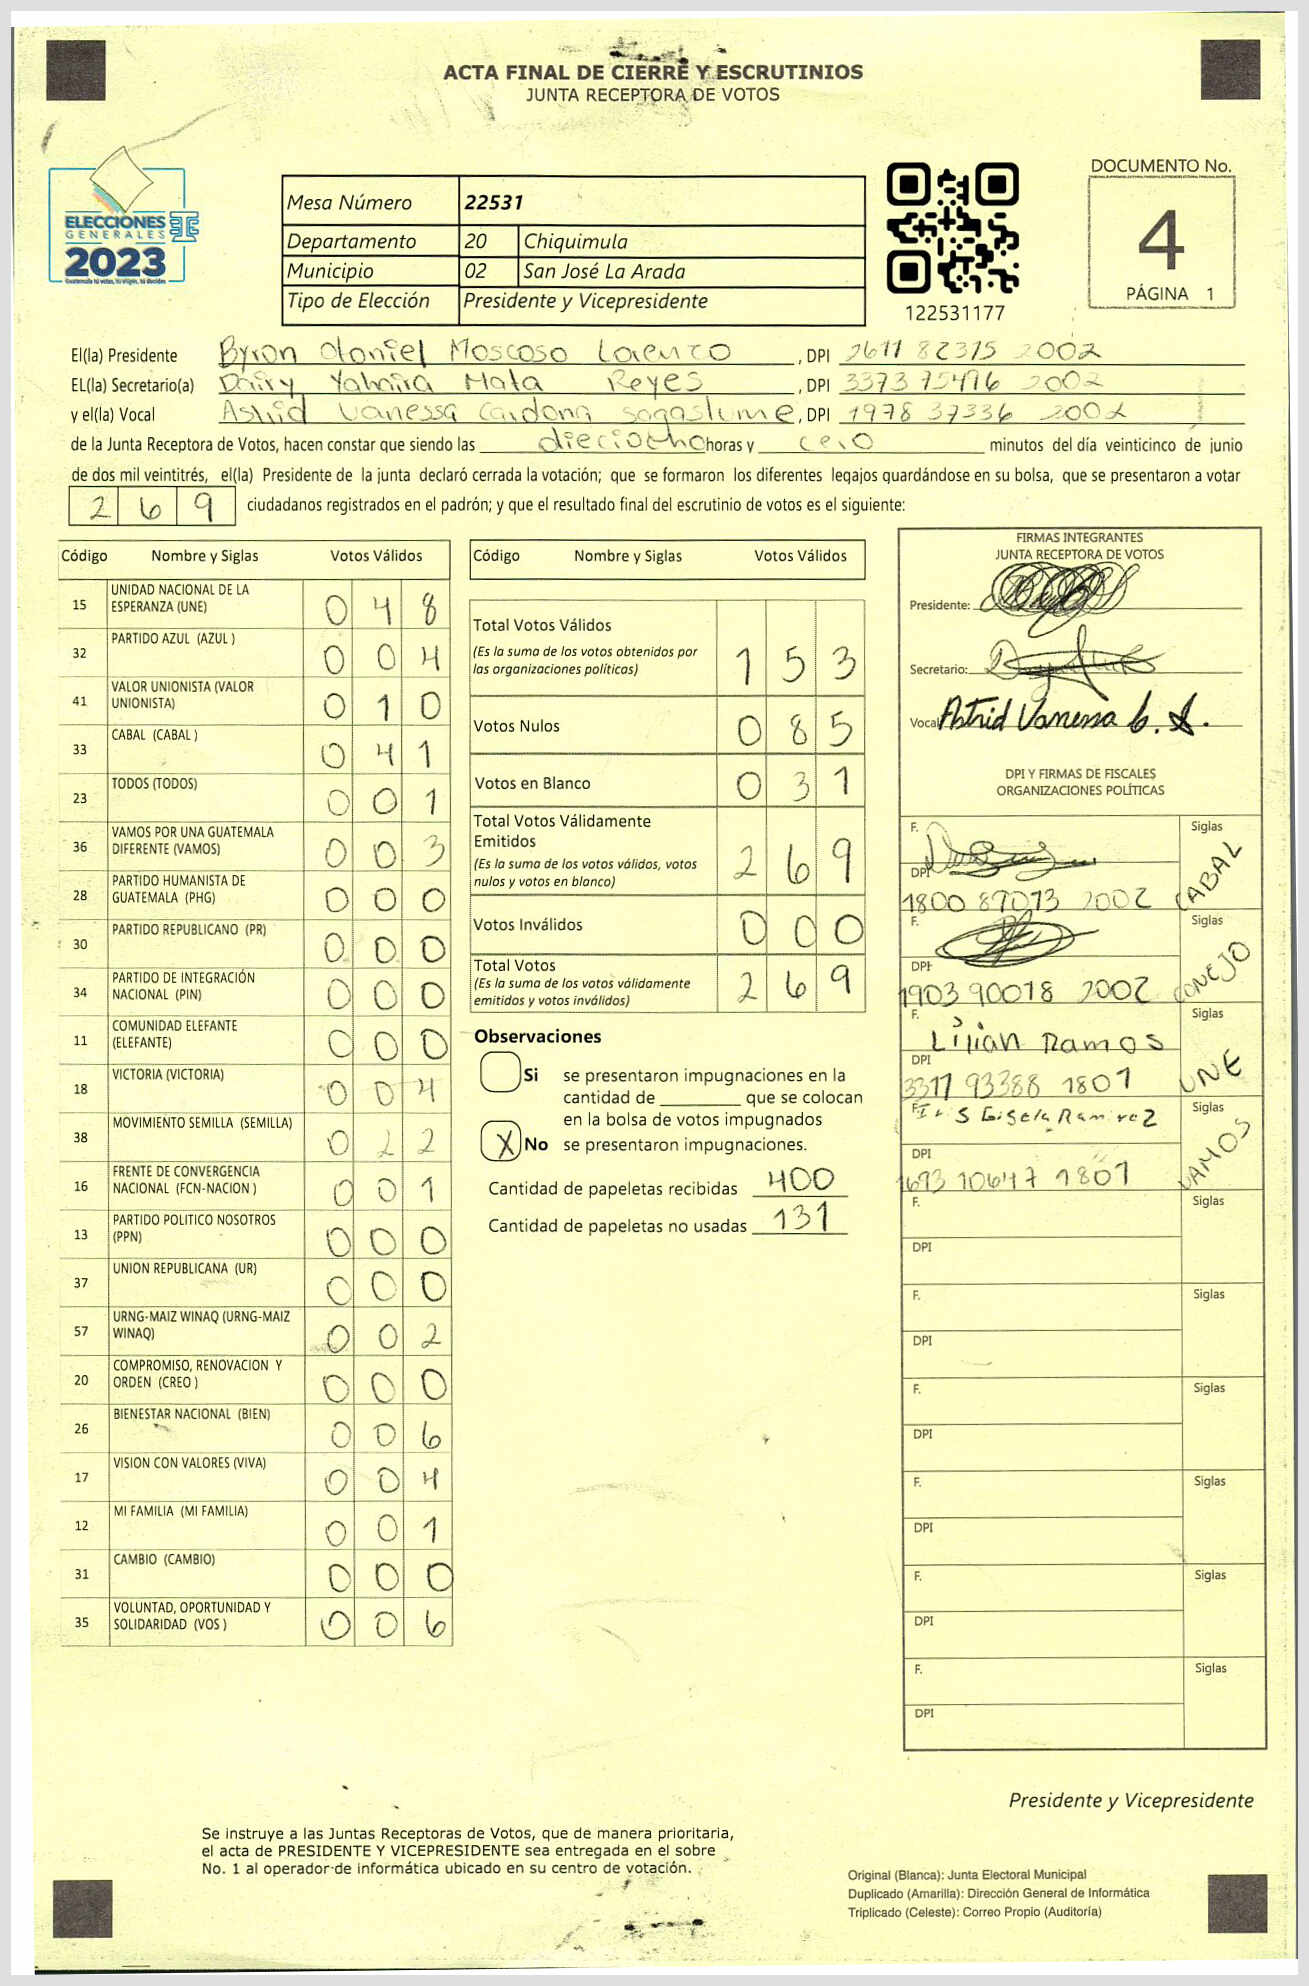 ACTA FINAL DE CIERRE Y ESCRUTINIOS
JUNTA RECEPTORA DE VOTOS
ELECCIONES
GENERALES
2023
Guatemala tú votas, tú eliges, tú decides
Mesa Número 22531
Departamento 20 Chiquimula
Municipio 02 San José La Arada
Tipo de Elección Presidente y Vicepresidente
122531177
DOCUMENTO No.
4
PÁGINA 1
El(la) Presidente Byron Otoniel Moscoso Lorenzo , DPI 2611 82315 2002
EL(la) Secretario(a) Dairy Yahaira Mata Reyes , DPI 3373 75496 2002
y el(la) Vocal Astrid Vanessa Cardona Sagastume, DPI 1978 37336 2002
de la Junta Receptora de Votos, hacen constar que siendo las dieciocho horas y cero minutos del día veinticinco de junio
de dos mil veintitrés, el(la) Presidente de la junta declaró cerrada la votación; que se formaron los diferentes legajos guardándose en su bolsa, que se presentaron a votar
269 ciudadanos registrados en el padrón; y que el resultado final del escrutinio de votos es el siguiente:
Código Nombre y Siglas Votos Válidos
15 UNIDAD NACIONAL DE LA ESPERANZA (UNE) 048
32 PARTIDO AZUL (AZUL ) 004
41 VALOR UNIONISTA (VALOR UNIONISTA) 010
33 CABAL (CABAL ) 041
23 TODOS (TODOS) 001
36 VAMOS POR UNA GUATEMALA DIFERENTE (VAMOS) 003
28 PARTIDO HUMANISTA DE GUATEMALA (PHG) 000
30 PARTIDO REPUBLICANO (PR) 000
34 PARTIDO DE INTEGRACIÓN NACIONAL (PIN) 000
11 COMUNIDAD ELEFANTE (ELEFANTE) 000
18 VICTORIA (VICTORIA) 004
38 MOVIMIENTO SEMILLA (SEMILLA) 022
16 FRENTE DE CONVERGENCIA NACIONAL (FCN-NACION ) 001
13 PARTIDO POLITICO NOSOTROS (PPN) 000
37 UNION REPUBLICANA (UR) 000
57 URNG-MAIZ WINAQ (URNG-MAIZ WINAQ) 002
20 COMPROMISO, RENOVACION Y ORDEN (CREO ) 000
26 BIENESTAR NACIONAL (BIEN) 006
17 VISION CON VALORES (VIVA) 004
12 MI FAMILIA (MI FAMILIA) 001
31 CAMBIO (CAMBIO) 000
35 VOLUNTAD, OPORTUNIDAD Y SOLIDARIDAD (VOS ) 006
Código Nombre y Siglas Votos Válidos
Total Votos Válidos 153
(Es la suma de los votos obtenidos por
las organizaciones políticas)
Votos Nulos 085
Votos en Blanco 031
Total Votos Válidamente
Emitidos 269
(Es la suma de los votos válidos, votos
nulos y votos en blanco)
Votos Inválidos 000
Total Votos 269
(Es la suma de los votos válidamente
emitidos y votos inválidos)
Observaciones
Si se presentaron impugnaciones en la
cantidad de ________ que se colocan
en la bolsa de votos impugnados
X No se presentaron impugnaciones.
Cantidad de papeletas recibidas 400
Cantidad de papeletas no usadas 131
FIRMAS INTEGRANTES
JUNTA RECEPTORA DE VOTOS
Presidente:
Secretario:
Vocal Astrid Vanessa C. S.
DPI Y FIRMAS DE FISCALES
ORGANIZACIONES POLÍTICAS
F. Siglas CABAL
DPI 1800 87073 2002
F. Siglas CONEJO
DPI 1903 90018 2002
F. Lilian Ramos Siglas UNE
DPI 3311 93388 1801
F. Iris Gisela Ramirez Siglas VAMOS
DPI 1693 10647 1801
F. Siglas
DPI
F. Siglas
DPI
F. Siglas
DPI
F. Siglas
DPI
F. Siglas
DPI
F. Siglas
DPI
Presidente y Vicepresidente
Se instruye a las Juntas Receptoras de Votos, que de manera prioritaria,
el acta de PRESIDENTE Y VICEPRESIDENTE sea entregada en el sobre
No. 1 al operador de informática ubicado en su centro de votación.
Original (Blanca): Junta Electoral Municipal
Duplicado (Amarilla): Dirección General de Informática
Triplicado (Celeste): Correo Propio (Auditoría)